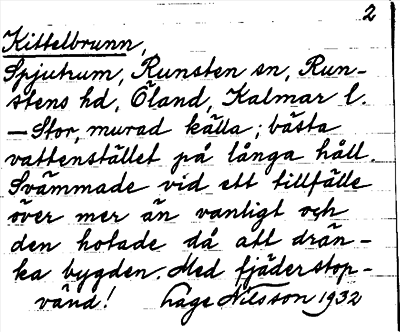 2
Kittelbrunn,
Spjutrum, Runsten sn, Run-
stens hd, Öland, Kalmar l.
— Stor, murad källa; bästa
vattenstället på långa håll.
Svämmade vid ett tillfälle
över mer än vanligt och
den hotade då att drän-
ka bygden. Med fjäder stop-
vänd! Lage Nilsson 1932